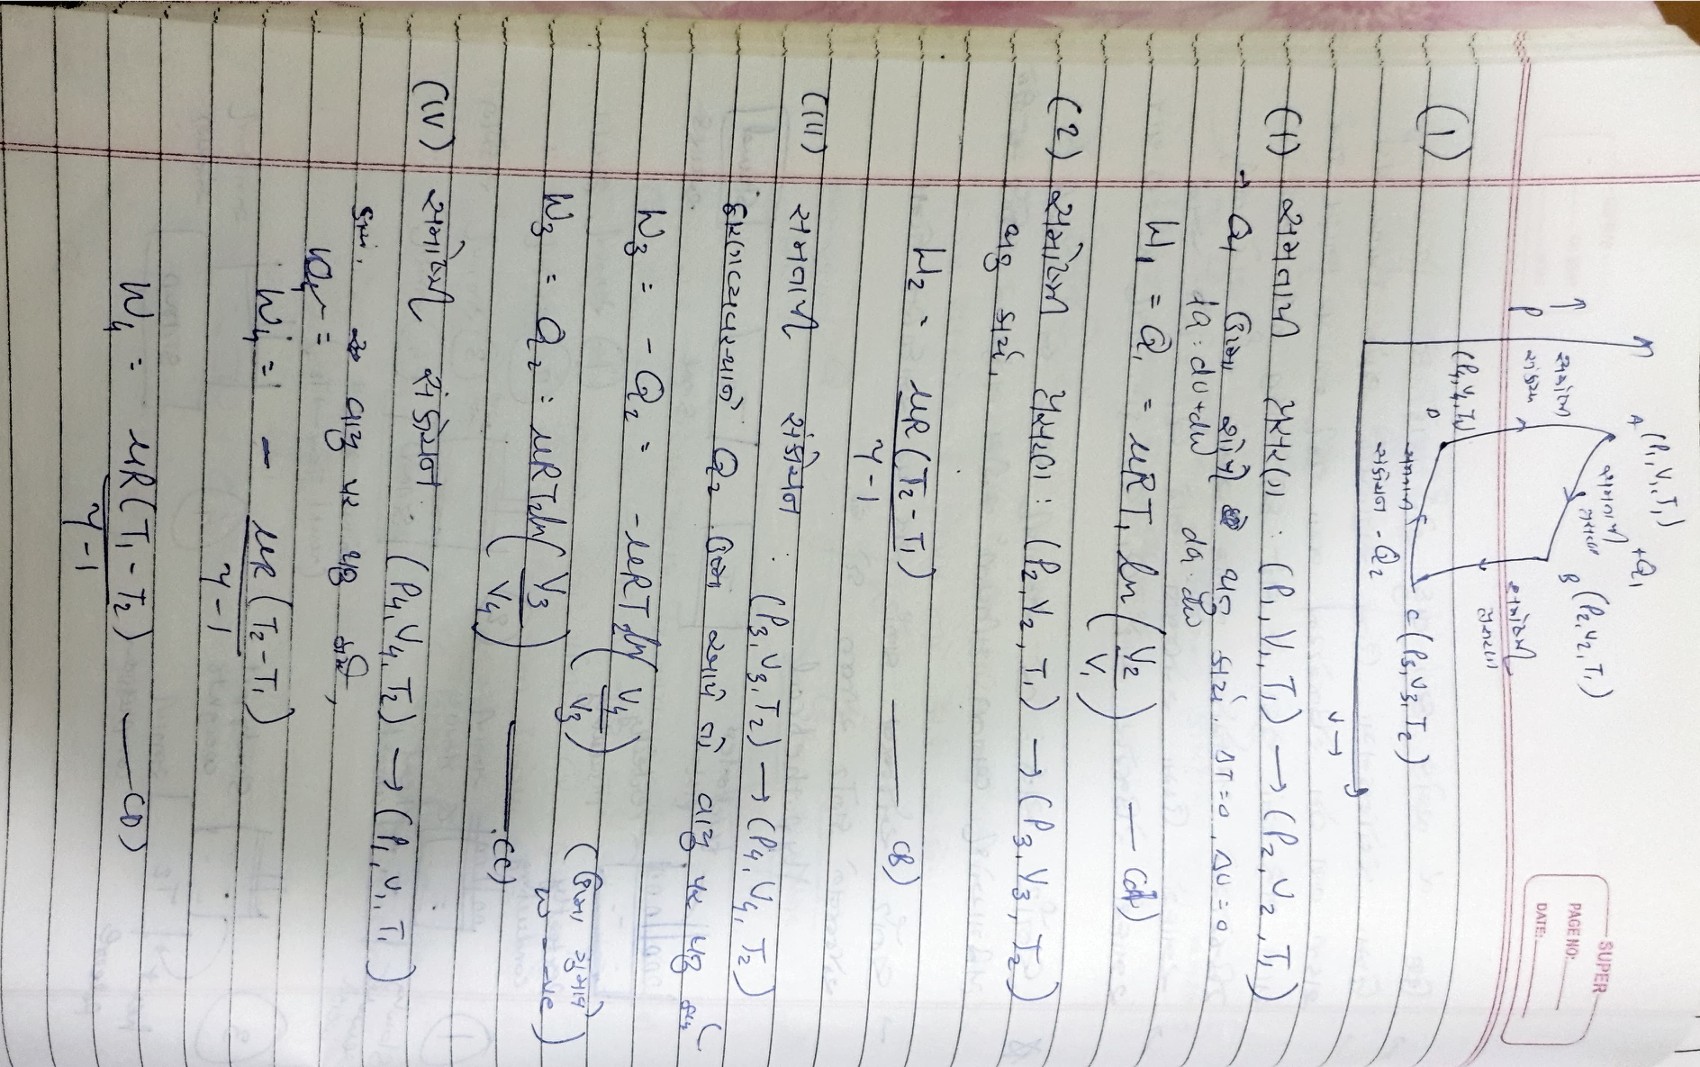 SUPER
PAGE NO:
DATE:
(1)
P
A (P₁, V₁, T₁)
+Q₁
સમતાપી
B (P₂, V₂, T₁)
સમોષ્મી
D
(P₄, V₄, T₂)
C (P₃, V₃, T₂)
સમોષ્મી
સંકોચન - Q₂
V →
(1) સમતાપી પ્રસરણ : (P₁, V₁, T₁) → (P₂, V₂, T₁)
→ Q₁ ઉષ્મા શોષી વાયુ કાર્ય. ΔT=0, ΔU=0
dQ = dU + dW dQ = dW
W₁ = Q₁ = μRT₁ ln (V₂/V₁) — (A)
(2) સમોષ્મી પ્રસરણ : (P₂, V₂, T₁) → (P₃, V₃, T₂)
વાયુ કાર્ય,
W₂ = μR(T₂ - T₁)/γ-1 — (B)
(III) સમતાપી સંકોચન : (P₃, V₃, T₂) → (P₄, V₄, T₂)
Q₂ ઉષ્મા વાયુ પર થતું કાર્ય
W₃ = - Q₂ = -μRT₂ ln (V₄/V₃) (ઉષ્મા ગુમાવે) W = -ve
W₃ = Q₂ = μRT₂ ln (V₃/V₄) — (C)
(IV) સમોષ્મી સંકોચન : (P₄, V₄, T₂) → (P₁, V₁, T₁)
વાયુ પર થતું કાર્ય,
W₄ = - μR(T₂ - T₁)/γ-1
W₄ = μR(T₁ - T₂)/γ-1 — (D)